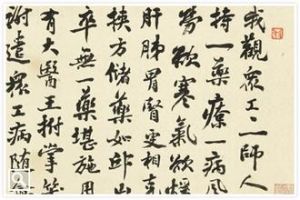 我觀眾工工一師人
持一藥療一病風
勞欲寒氣欲煖
肝肺胃腎更相
挾方儲藥如丘山
卒無一藥堪施用
有大醫王拊掌笑
謝遣眾工病隨